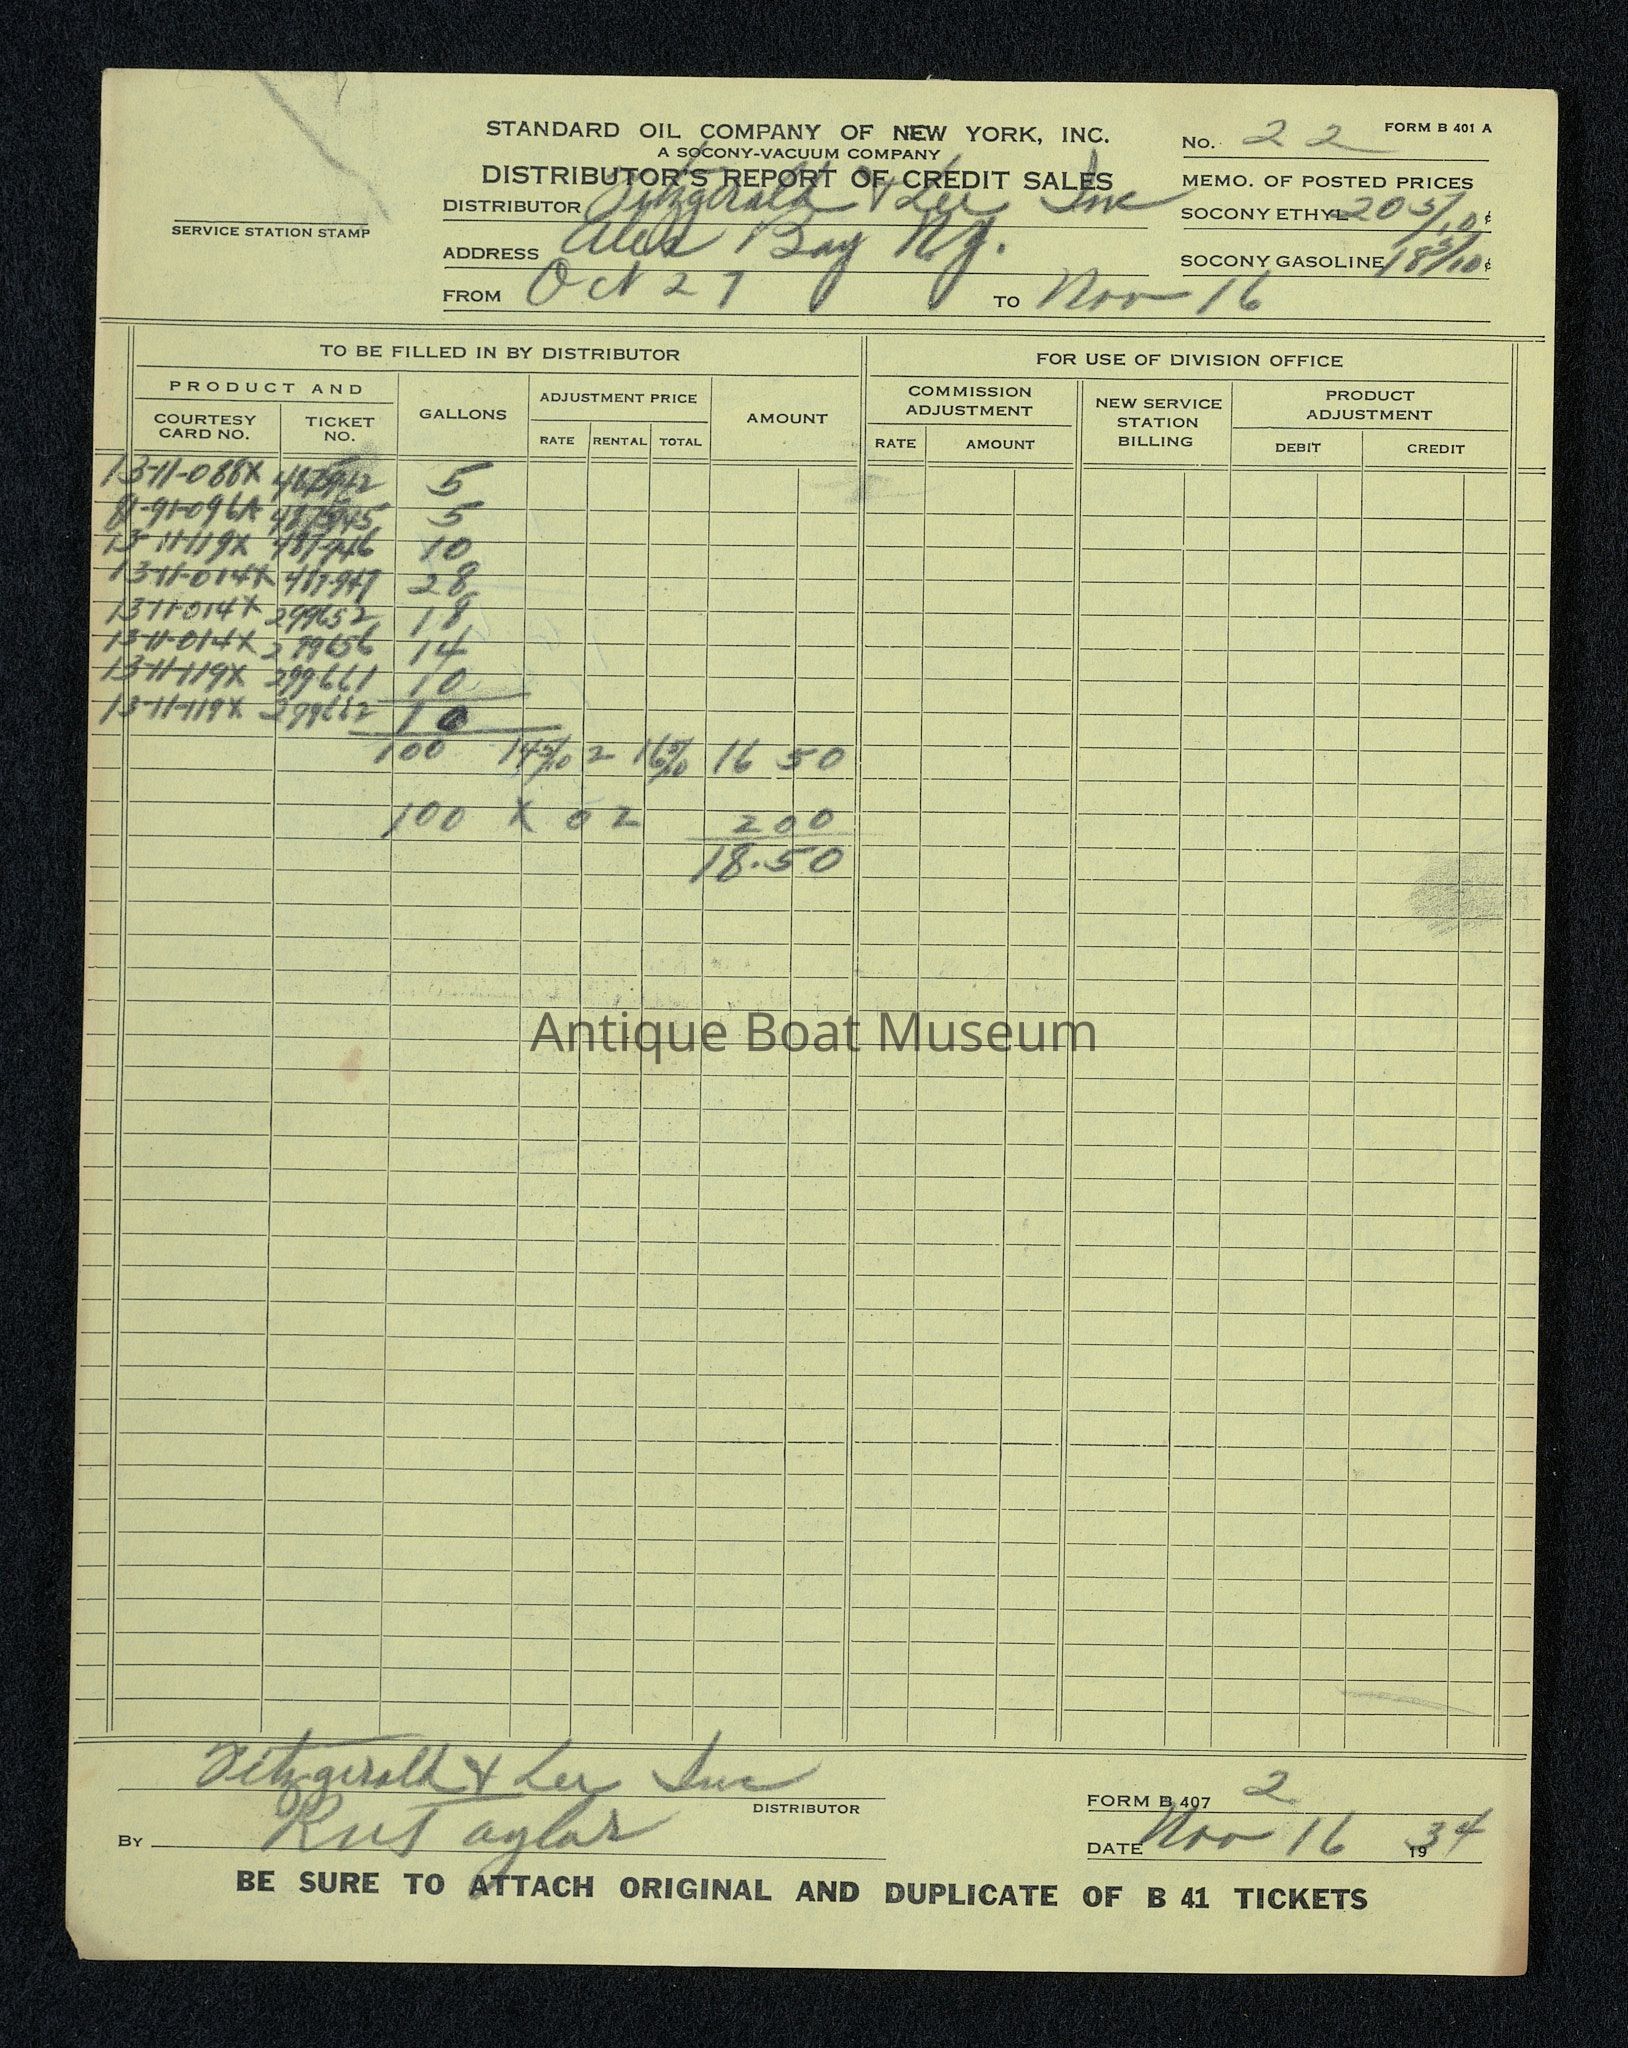 STANDARD OIL COMPANY OF NEW YORK, INC.
A SOCONY-VACUUM COMPANY
DISTRIBUTOR'S REPORT OF CREDIT SALES
No. 22 FORM B 401 A
MEMO. OF POSTED PRICES
SERVICE STATION STAMP
DISTRIBUTOR Fitzgerald & Lee Inc
SOCONY ETHYL 20 5/10 ¢
ADDRESS Alex Bay N.y.
SOCONY GASOLINE 18 5/10 ¢
FROM Oct 27 TO Nov 16
TO BE FILLED IN BY DISTRIBUTOR FOR USE OF DIVISION OFFICE
PRODUCT AND
COURTESY CARD NO. TICKET NO. GALLONS ADJUSTMENT PRICE AMOUNT COMMISSION ADJUSTMENT NEW SERVICE STATION BILLING PRODUCT ADJUSTMENT
RATE RENTAL TOTAL RATE AMOUNT DEBIT CREDIT
13-11-088X 487942 5
81-91-096A 487945 5
13-11-119X 487946 10
13-11-014X 487949 28
13-11-014X 299652 18
13-11-014X 299656 14
13-11-119X 299661 10
13-11-119X 299662 10
100 14 5/10 2 16 5/10 16 50
100 X 02 200
18.50
Antique Boat Museum
Fitzgerald & Lee Inc
DISTRIBUTOR
FORM B 407 2
BY Taylor
DATE Nov 16 1934
BE SURE TO ATTACH ORIGINAL AND DUPLICATE OF B 41 TICKETS